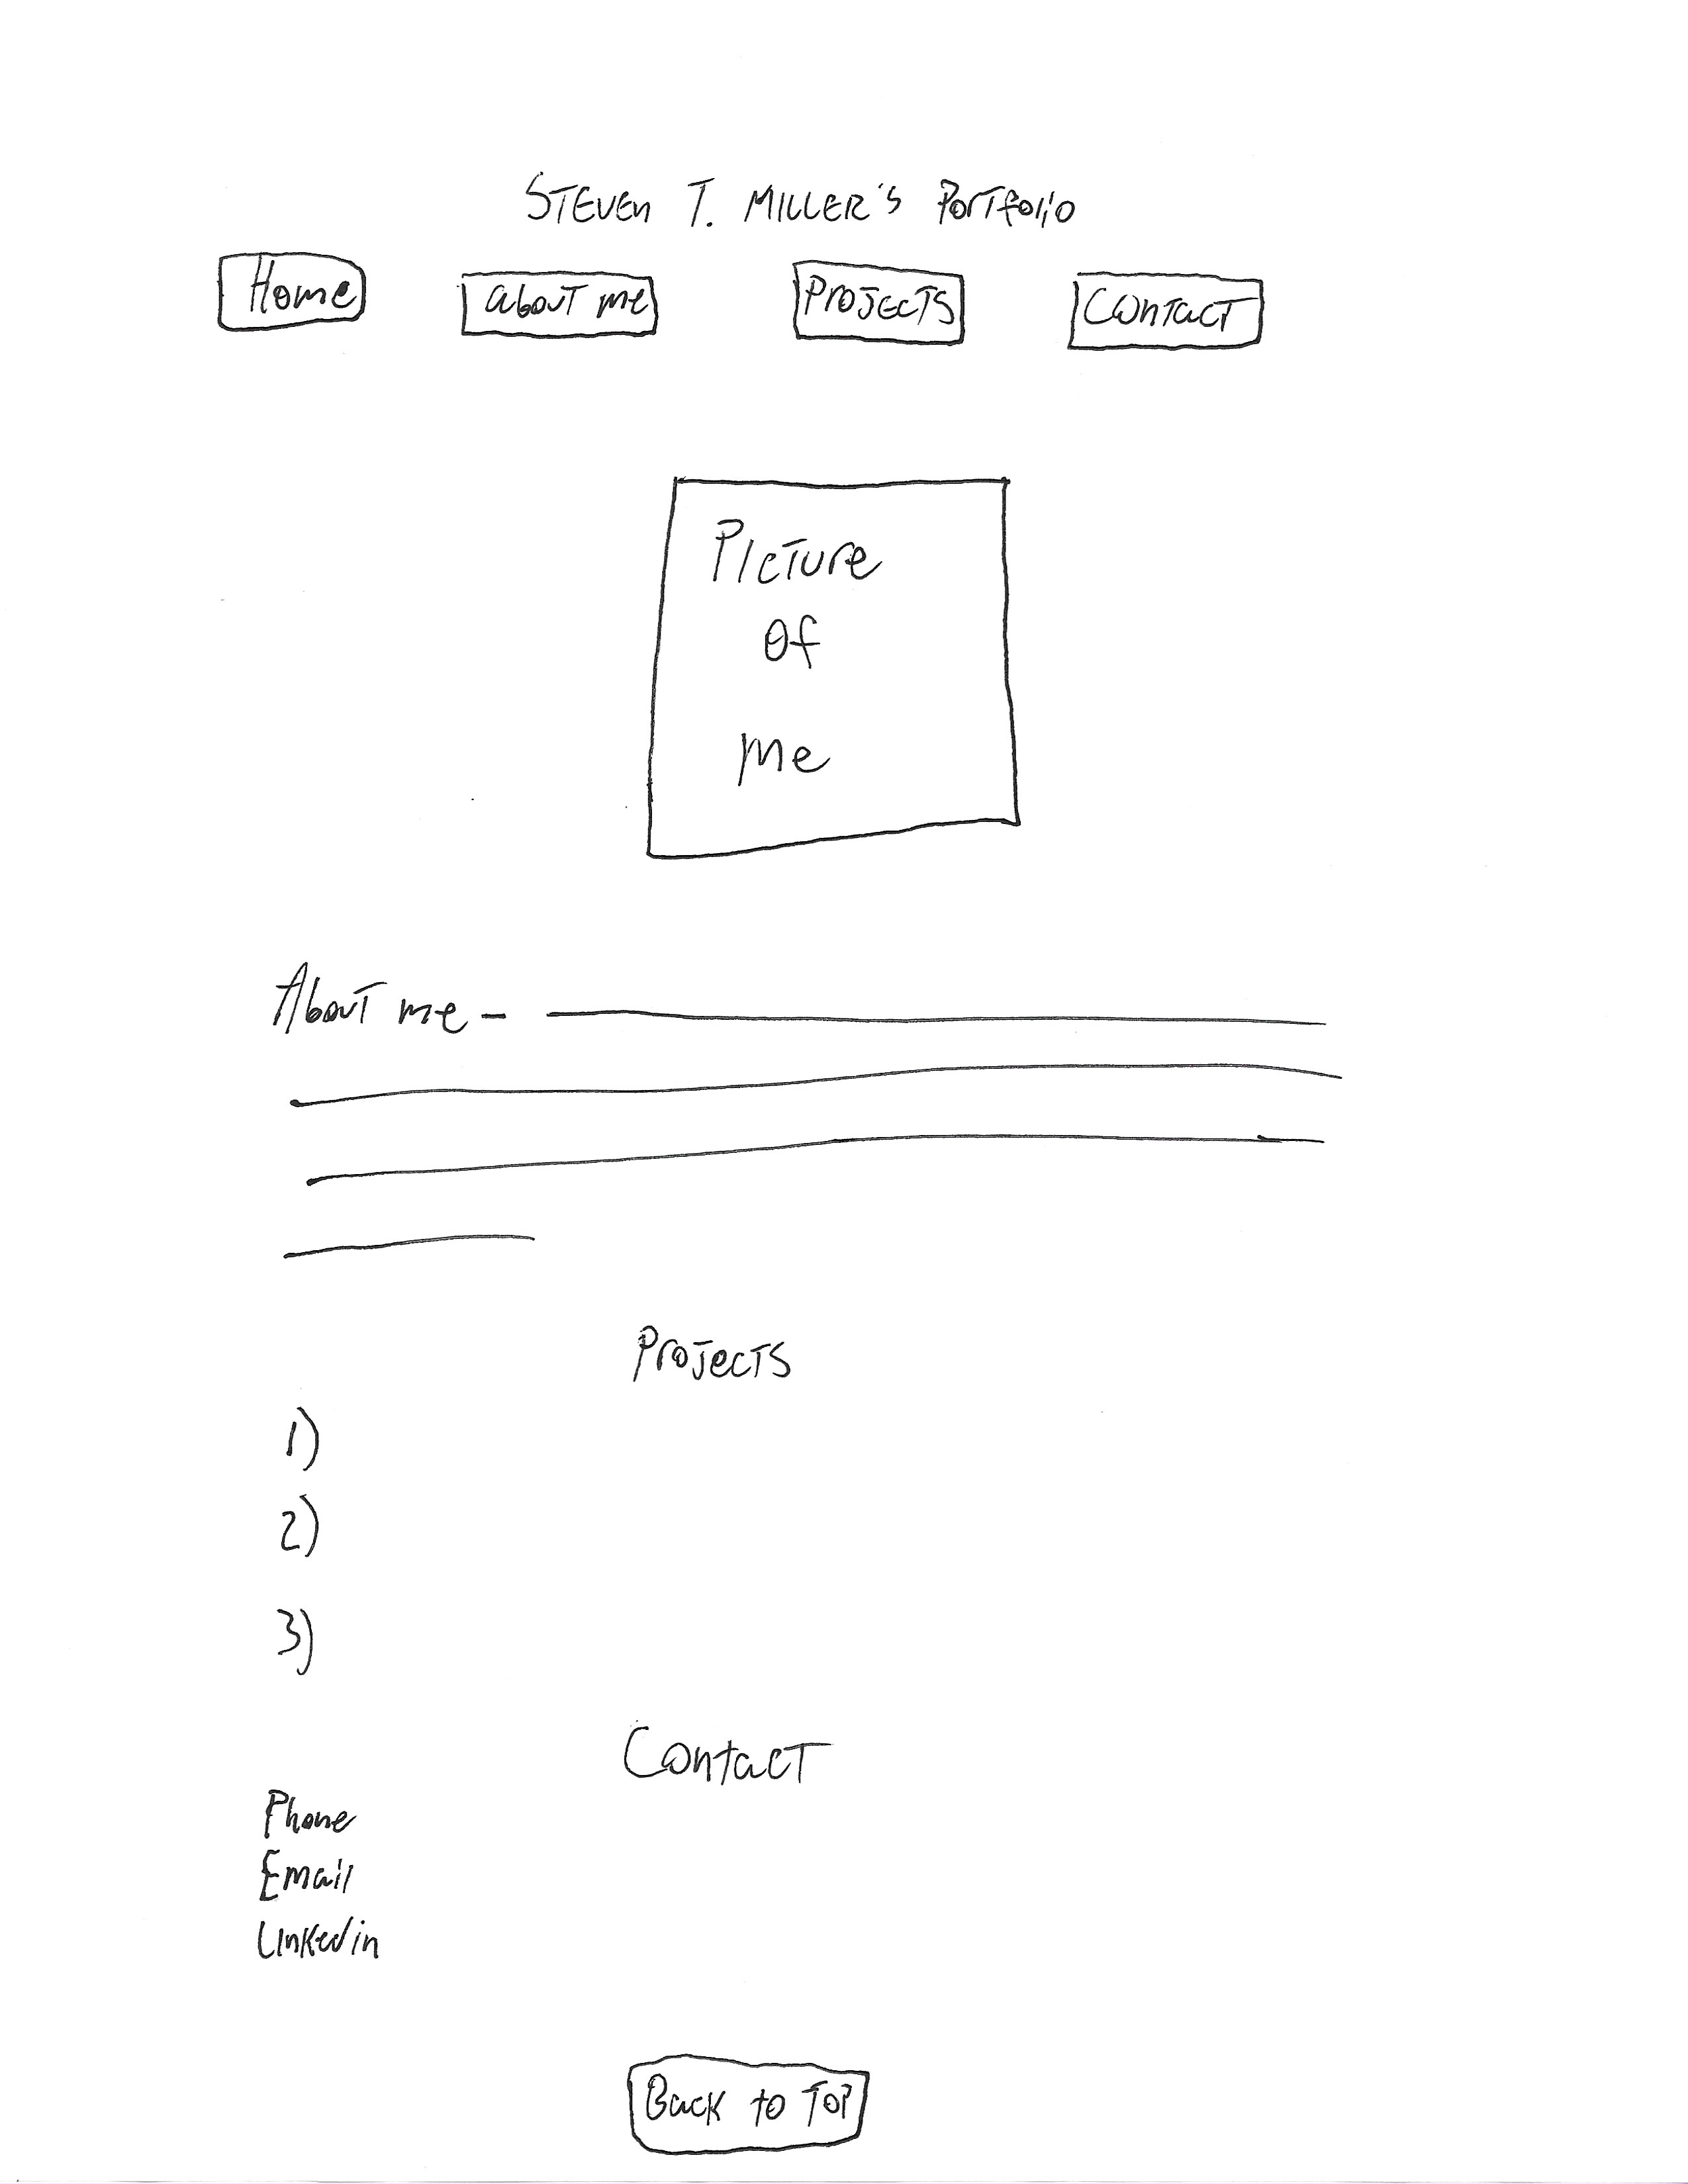 STEVEN T. MILLER'S Portfolio
Home about me PROJECTS Contact
Picture
of
me
About me -
Projects
1)
2)
3)
Contact
Phone
Email
Linkedin
Back to Top